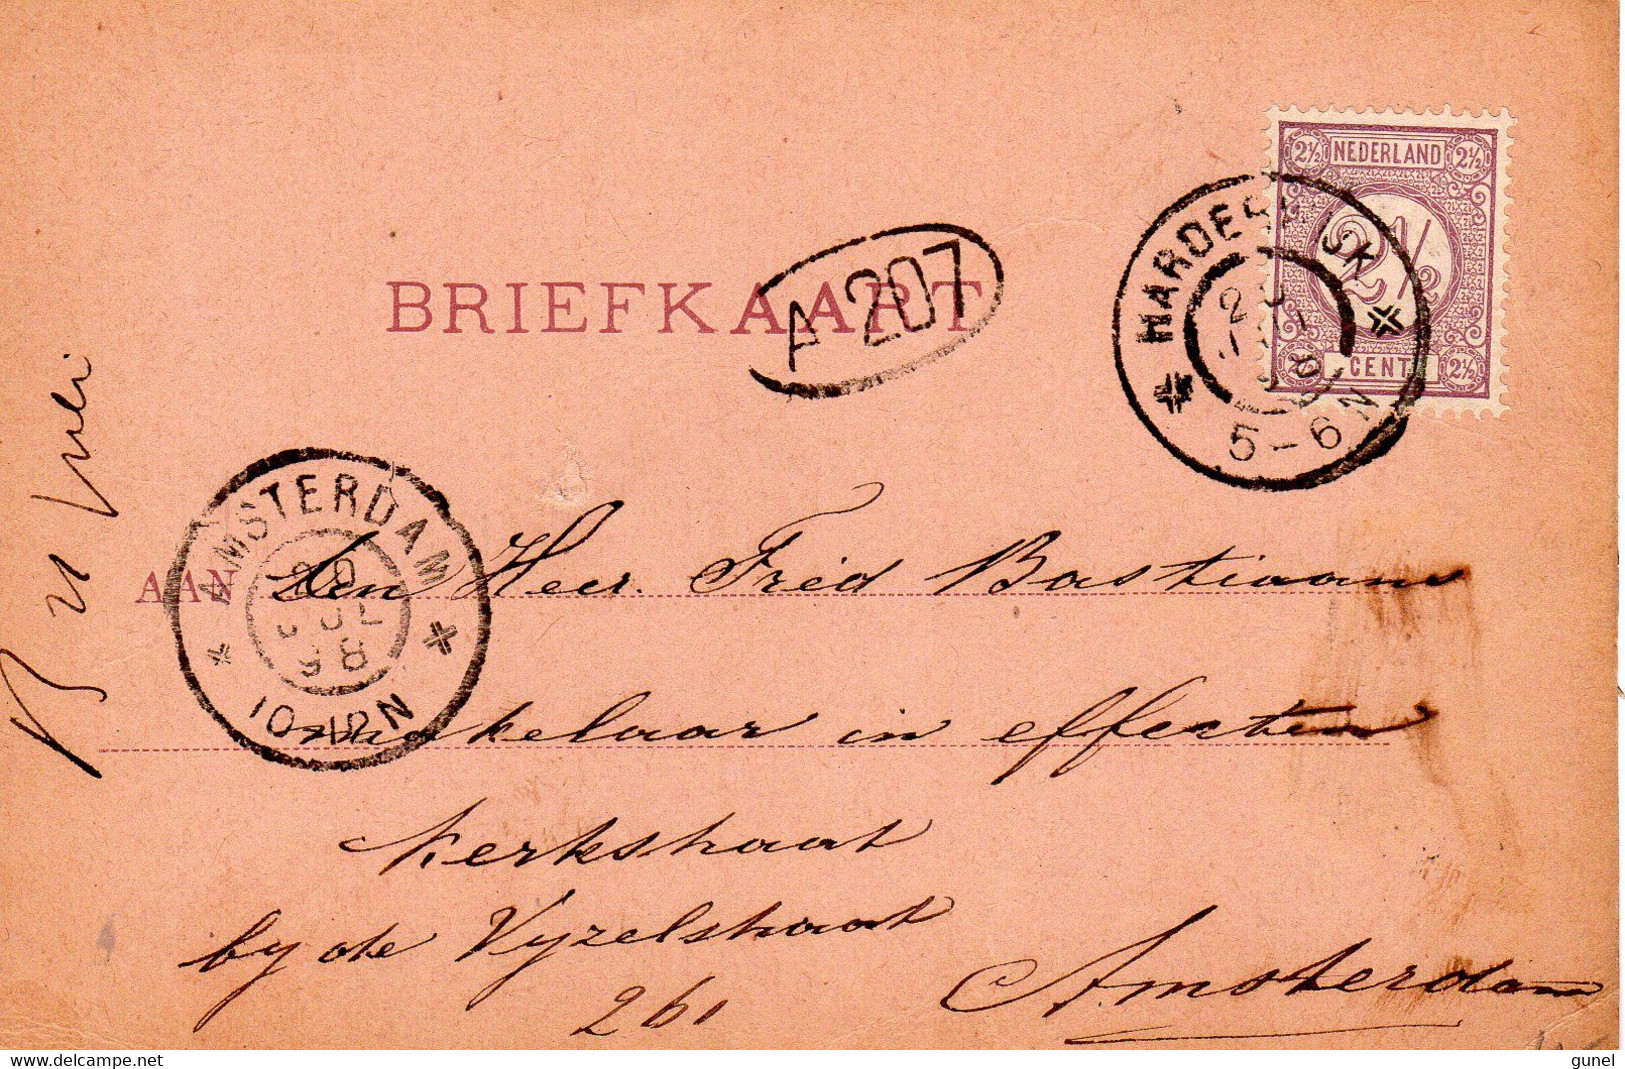 2½ NEDERLAND 2½
2½
2½ CENT 2½
HARDERWIJK
5-6N
A 207
BRIEFKAART
AMSTERDAM
20
JUL
98
10-12N
AAN den Heer Fred Bastiaans
makelaar in effecten
Kerkstraat
by de Vyzelstraat
261
Amsterdam
delcampe.net
gunel